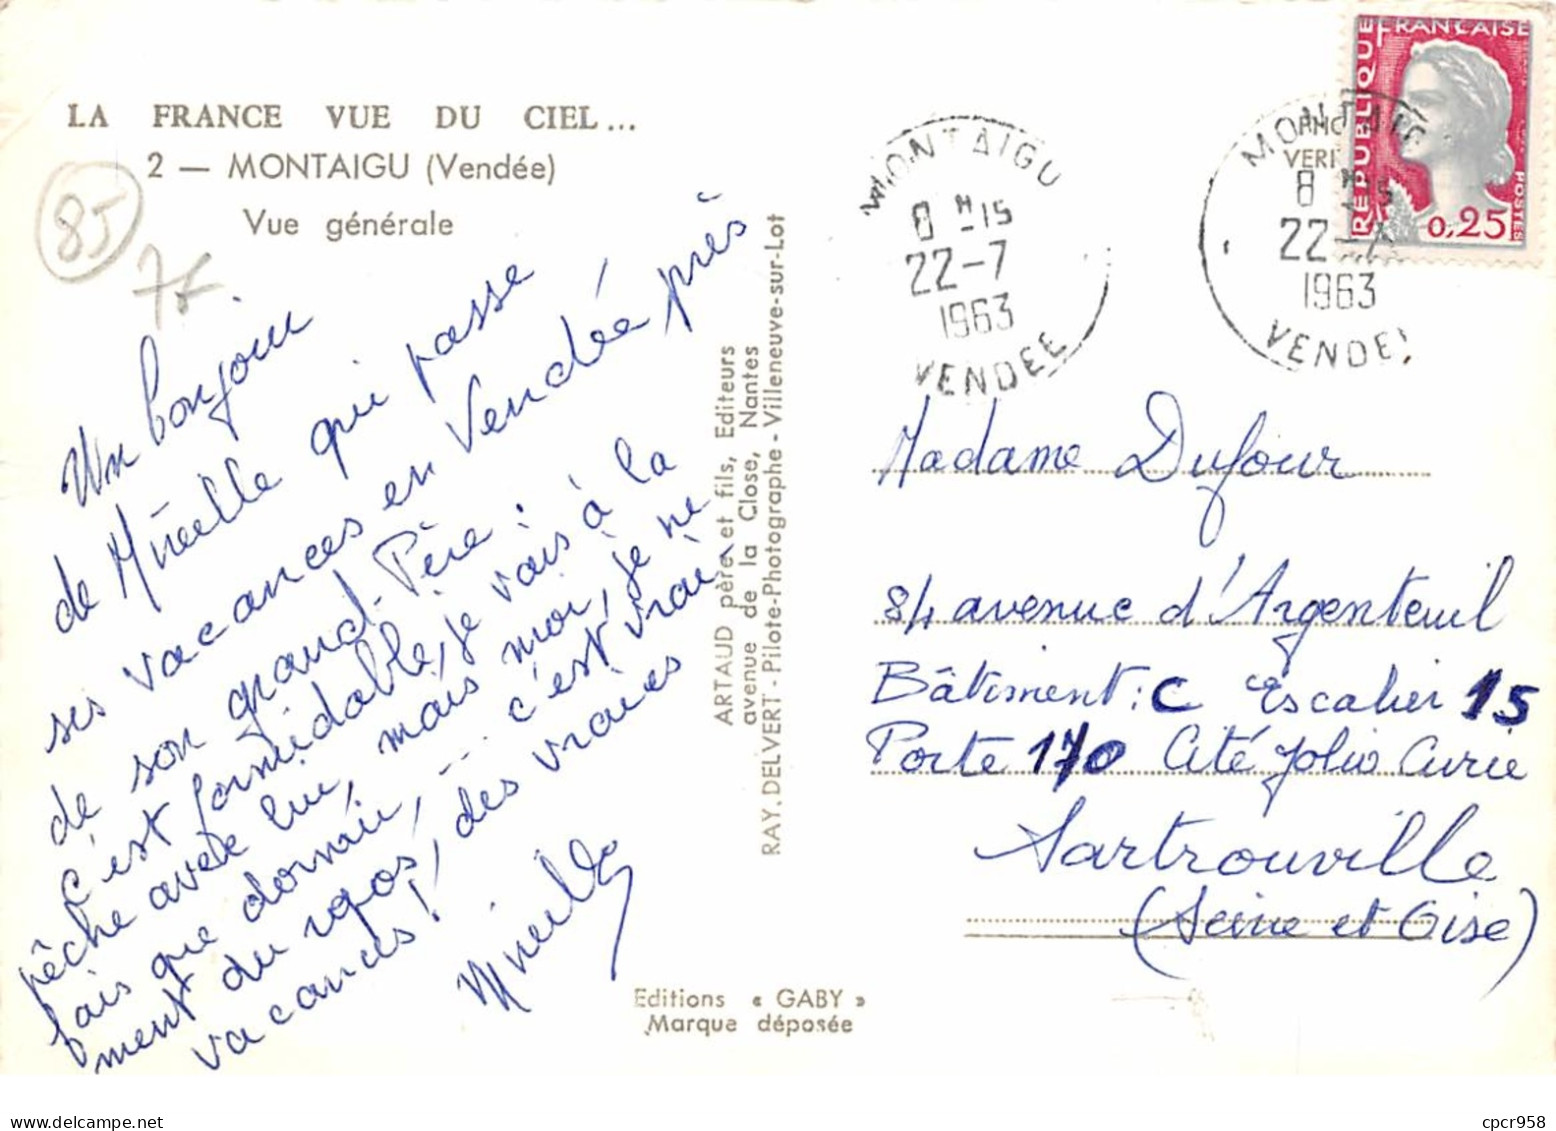 LA FRANCE VUE DU CIEL...
2 — MONTAIGU (Vendée)
Vue générale
85
Un bonjour
de Mireille qui passe
ses vacances en Vendée près
de son grand-Père :
c'est formidable, je vais à la
pêche avec lui, mais moi, je ne
fais que dormir, ... c'est vrai-
ment du repos, des vraies
vacances !
Mireille
ARTAUD père et fils, Editeurs
avenue de la Close, Nantes
RAY. DELVERT - Pilote-Photographe - Villeneuve-sur-Lot
Editions « GABY »
Marque déposée
MONTAIGU
8 H 15
22-7
1963
VENDEE
MONTAIG
8 H 15
22-7
1963
VENDE
REPUBLIQUE FRANCAISE
POSTES
0,25
Madame Dufour
84 avenue d'Argenteuil
Bâtiment : C Escalier 15
Porte 170 Cité Jolio Curie
Sartrouville
(Seine et Oise)
cpcr958